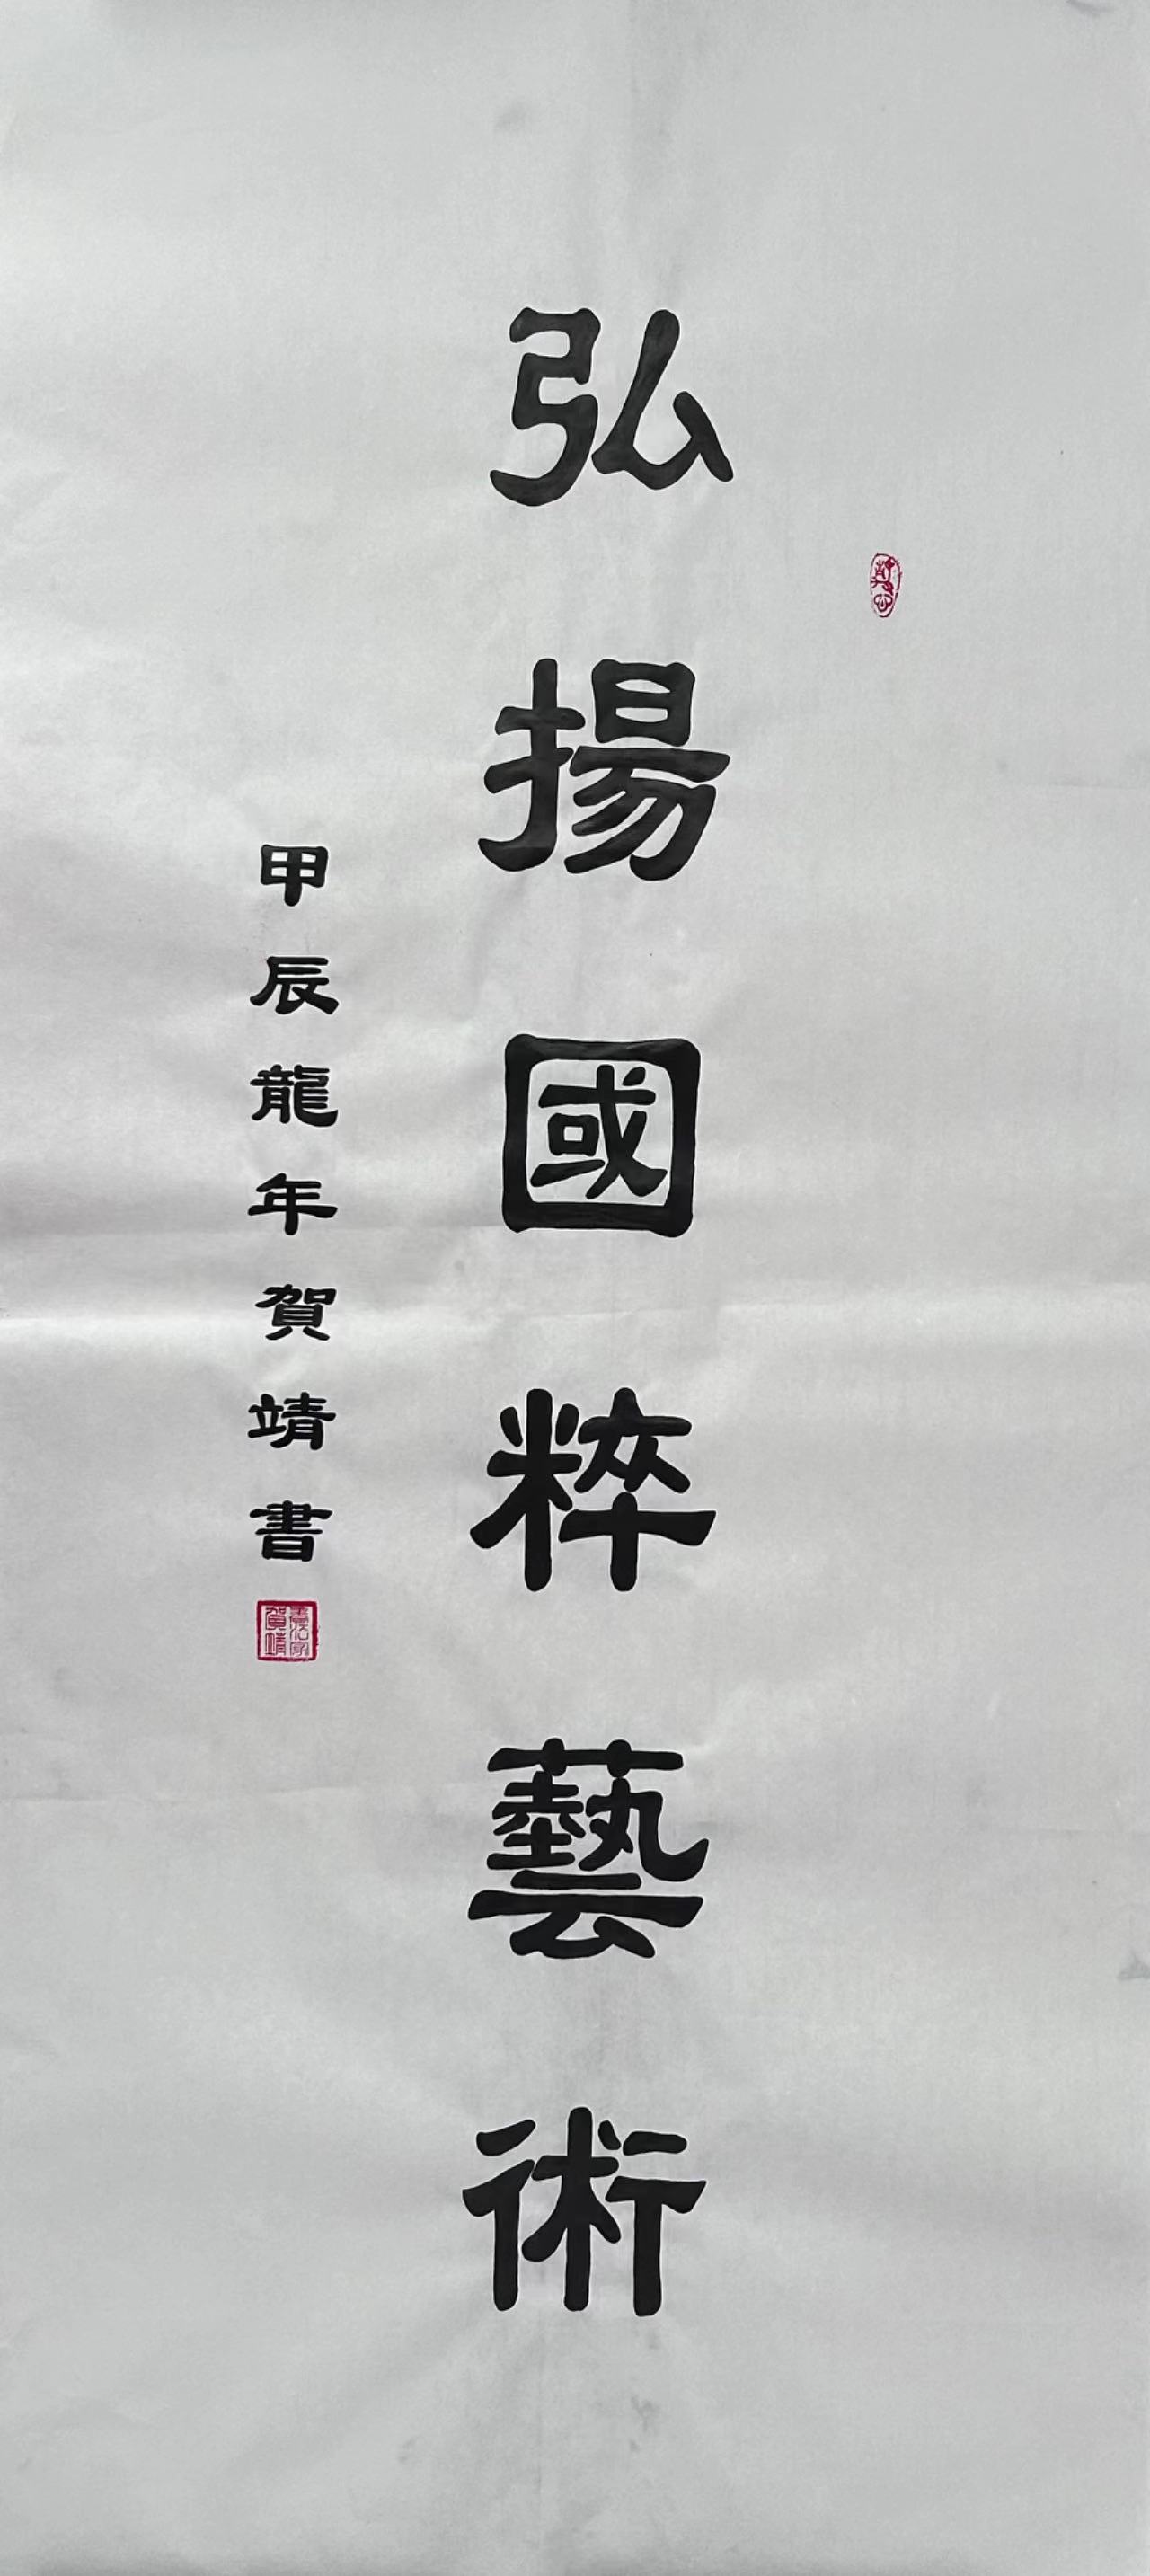 弘揚國粹藝術
甲辰龍年賀靖書
書法家
賀靖